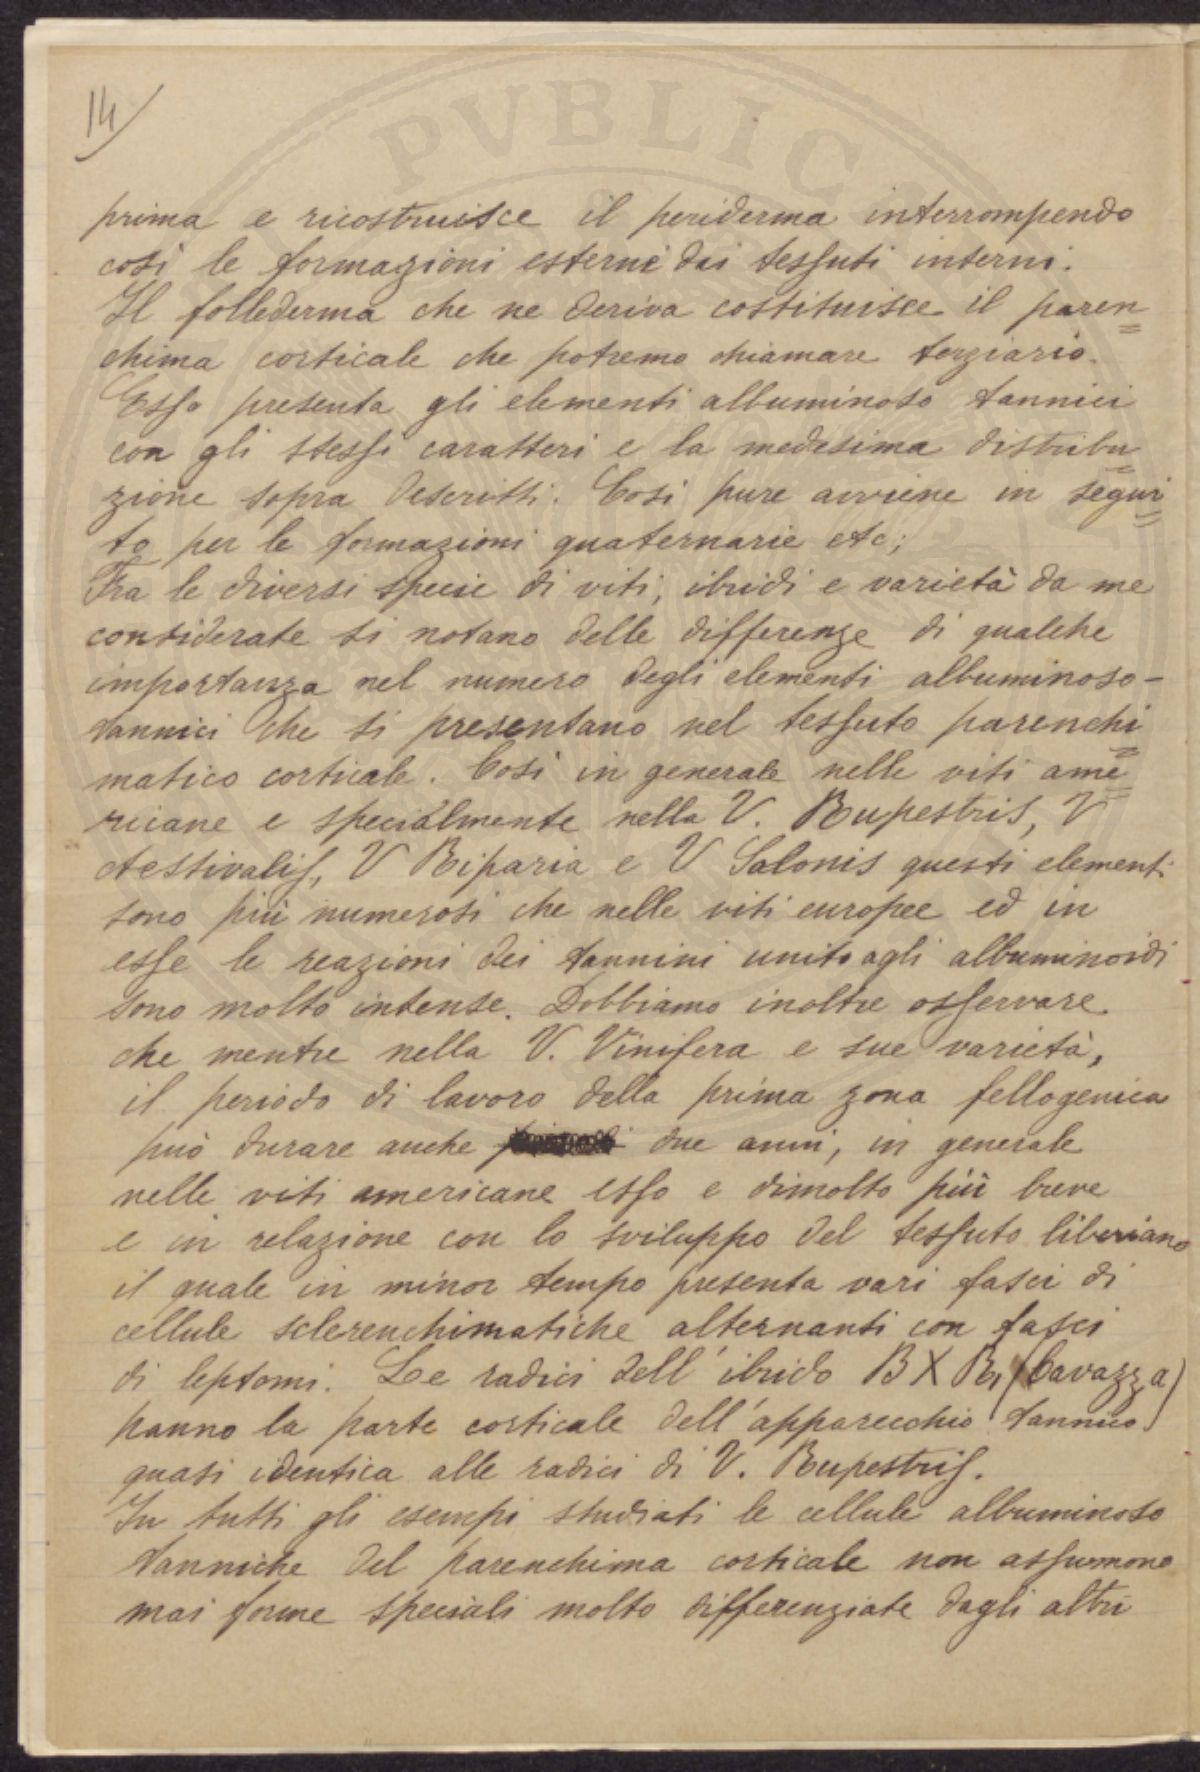 14/
PVBLIC
prima e ricostruisce il periderma interrompendo
così le formazioni esterne dai tessuti interni.
Il folloderma che ne deriva costituisce il paren
chima corticale che potremo chiamare terziario.
Esso presenta gli elementi albuminoso tannici
con gli stessi caratteri e la medesima distribu
zione sopra descritti. Così pure avviene in segui
to per le formazioni quaternarie etc;
Fra le diversi specie di viti, ibridi e varietà da me
considerate si notano delle differenze di qualche
importanza nel numero degli elementi albuminoso-
tannici che si presentano nel tessuto parenchi
matico corticale. Così in generale nelle viti ame
ricane e specialmente nella V. Rupestris, V
Aestivalis, V Riparia e V Solonis questi elementi
sono più numerosi che nelle viti europee ed in
esse le reazioni dei tannini uniti agli albuminoidi
sono molto intense. Dobbiamo inoltre osservare
che mentre nella V. Vinifera e sue varietà,
il periodo di lavoro della prima zona fellogenica
può durare anche due anni, in generale
nelle viti americane esso e dimolto più breve
e in relazione con lo sviluppo del tessuto liberiano
il quale in minor tempo presenta vari fasci di
cellule sclerenchimatiche alternanti con fasci
di leptomi. Le radici dell'ibrido B X R, (Cavazza)
hanno la parte corticale dell'apparecchio tannico
quasi identica alle radici di V. Rupestris.
In tutti gli esempi studiati le cellule albuminoso
tanniche del parenchima corticale non assumono
mai forme speciali molto differenziate dagli altri